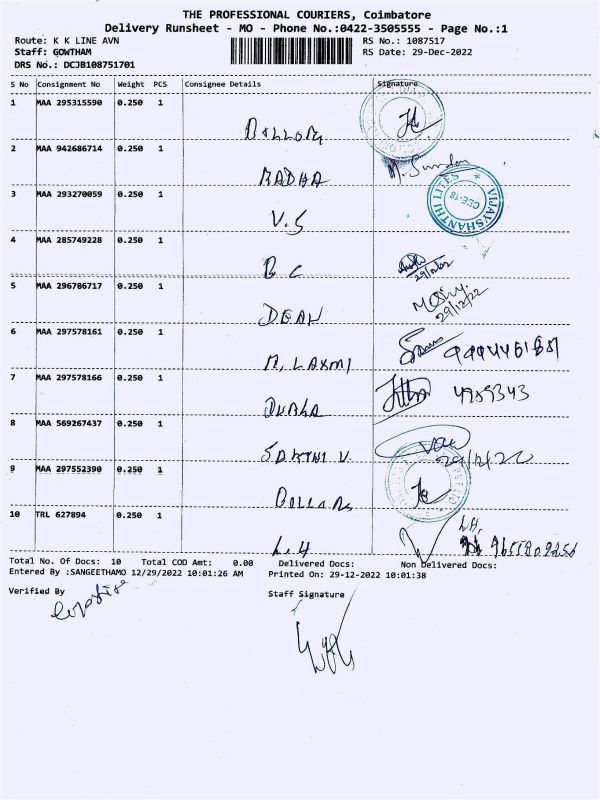 THE PROFESSIONAL COURIERS, Coimbatore
Delivery Runsheet - MO - Phone No.:0422-3505555 - Page No.:1
Route: K K LINE AVN RS No.: 1087517
Staff: GOWTHAM RS Date: 29-Dec-2022
DRS No.: DCJB108751701
S No Consignment No Weight PCS Consignee Details Signature
1 MAA 295315590 0.250 1
2 MAA 942686714 0.250 1
M. Sundar
RADHA
3 MAA 293270059 0.250 1
VIJAYSHANTHI LITES
CBE-18
V.S
4 MAA 285749228 0.250 1
B C
29/12/22
5 MAA 296786717 0.250 1
29/12/22
DEAN
6 MAA 297578161 0.250 1
M. LAXMI
7 MAA 297578166 0.250 1
DURGA
8 MAA 569267437 0.250 1
SAKTHI V. 29/12/22
9 MAA 297552390 0.250 1
DOLLARS
10 TRL 627894 0.250 1
L.H
L.H
Total No. Of Docs: 10 Total COD Amt: 0.00 Delivered Docs: Non Delivered Docs:
Entered By :SANGEETHAMO 12/29/2022 10:01:26 AM Printed On: 29-12-2022 10:01:38
Verified By Staff Signature